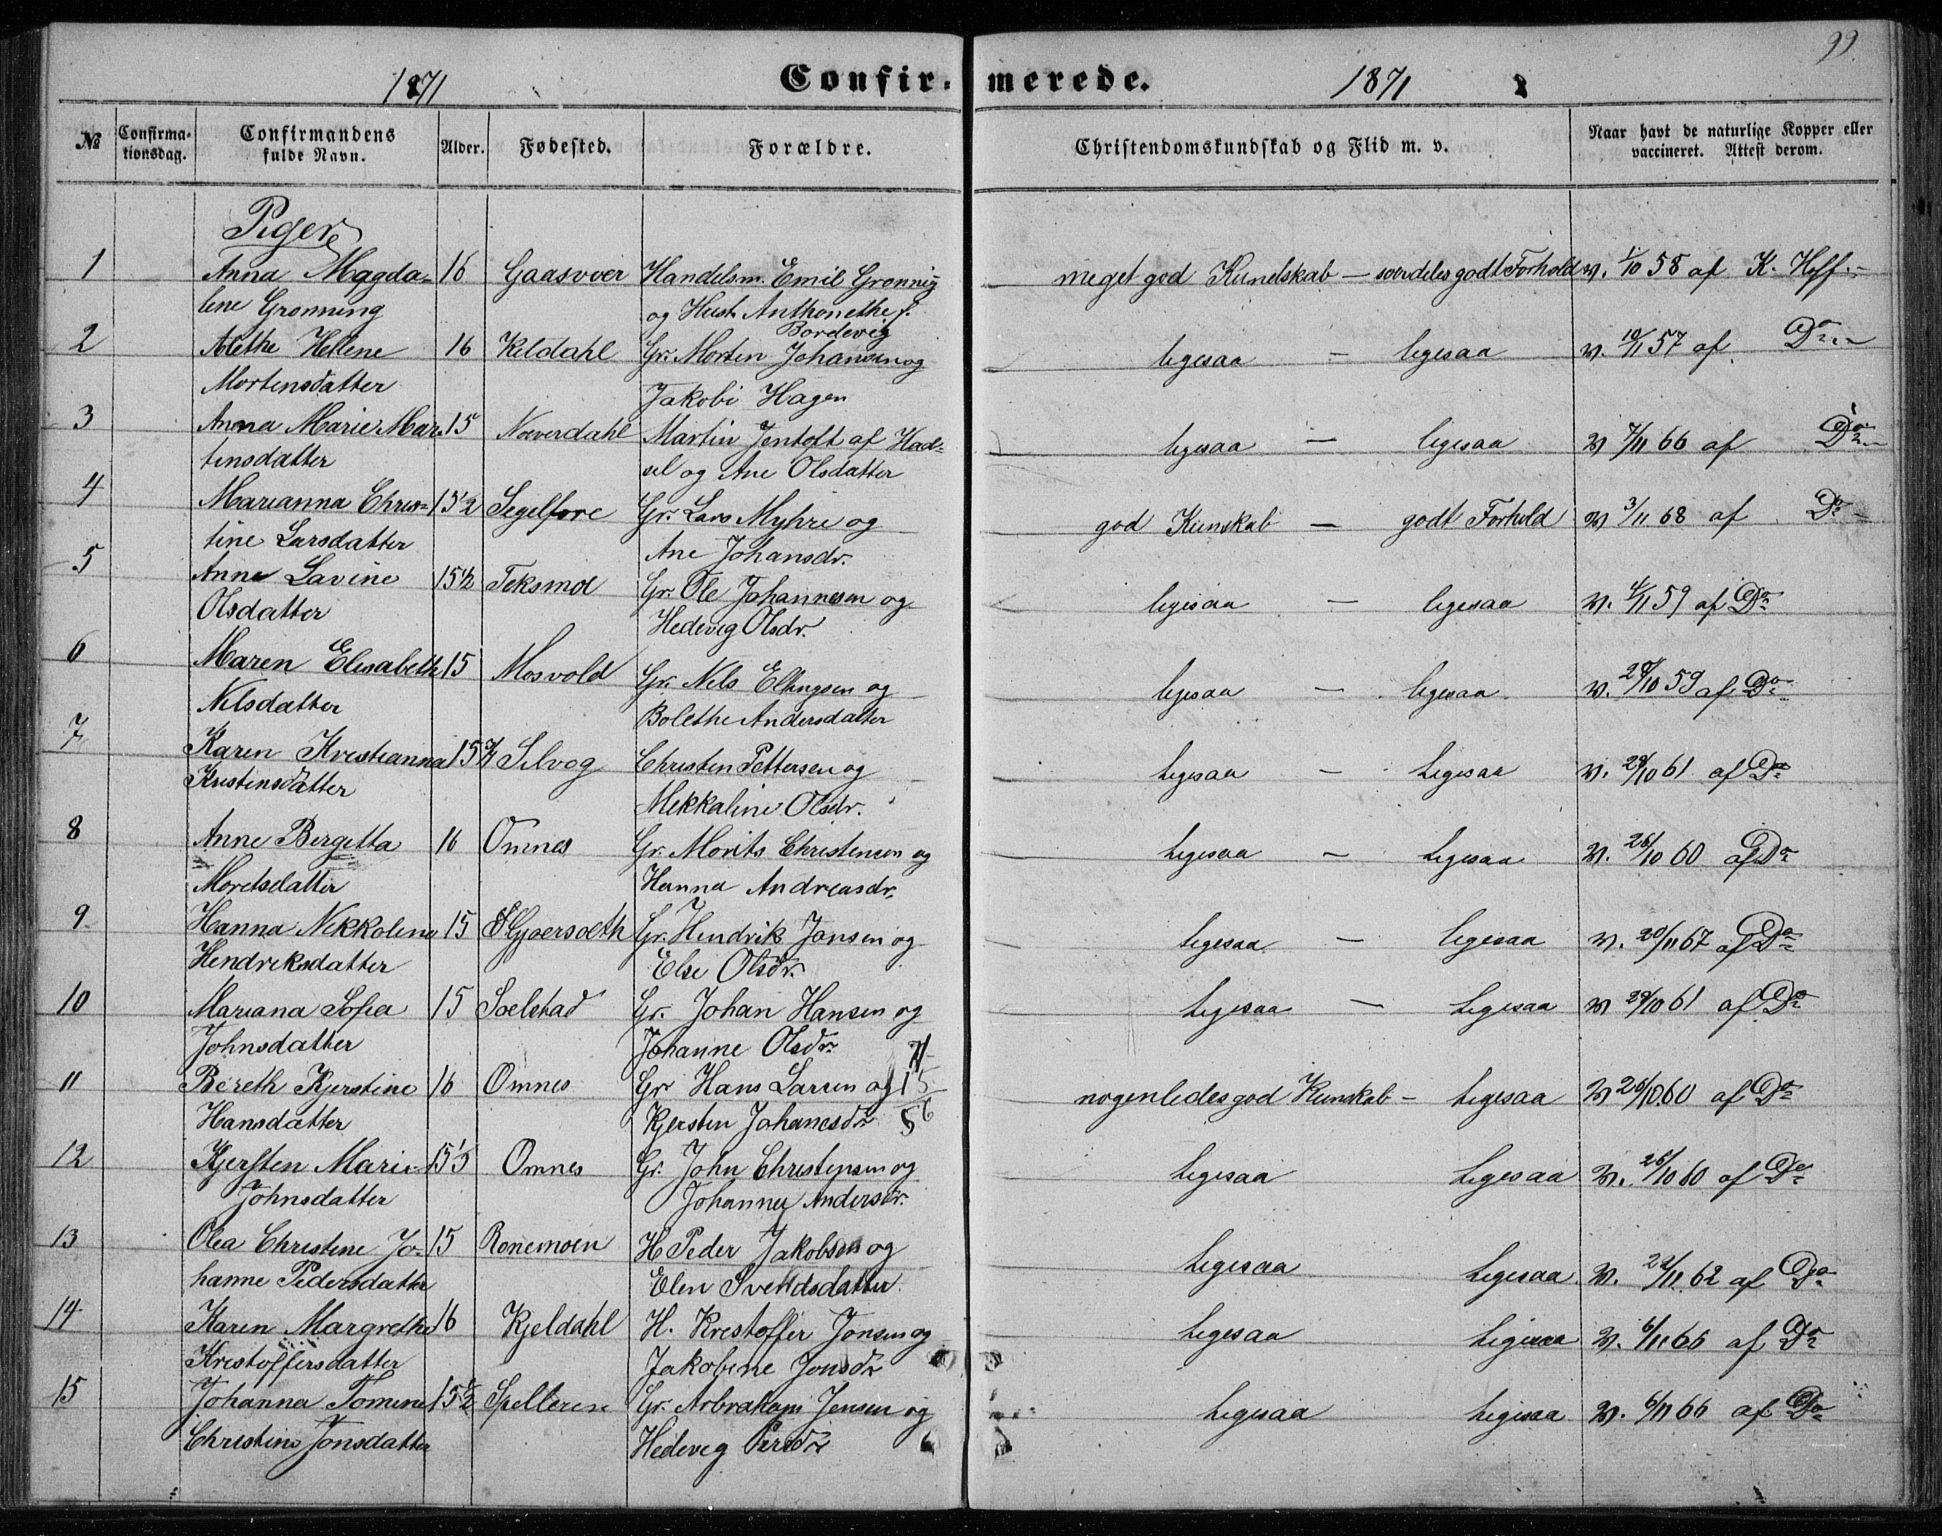 99
1871 Confir- merede. 1871
№ Confirma- Confirmandens Alder. Fødested. Forældre. Christendomskundskab og Flid m. v. Naar havt de naturlige Kopper eller
tionsdag. fulde Navn. vaccineret. Attest derom.
Piger
1 Anna Magda- 16 Gaasvær Handelsm. Emil Grønnig meget god Kundskab — særdeles godt Forhold v. 1/10 58 af K. Hoff
lene Grønning og Hust. Anthonethe f.
Bordevig
2 Alethe Helene 16 Keldahl Gr. Morten Johansen og ligesaa — ligesaa v. 10/11 57 af Do
Mortensdatter Jakobi Hagen
3 Anna Marie Mar- 15 Næverdahl Martin Jentoft af Had- ligesaa — ligesaa v 7/11 66 af Do
tinsdatter sel og Ane Olsdatter
4 Marianna Chris- 15 1/2 Segelfore Gr. Lars Myhre og god Kunskab — godt Forhold v 3/11 68 af Do
tine Larsdatter Ane Johansdr.
5 Anne Lavine 15 1/2 Teksmo Gr. Ole Johannesen og ligesaa — ligesaa v. 4/11 59 af Do
Olsdatter Hedevig Olsdr.
6 Maren Elisabeth 15 Mosvold Gr. Nils Ellingsen og ligesaa — ligesaa v. 29/10 59 af Do
Nilsdatter Bolethe Andersdatter
7 Karen Kristianna 15 3/4 Selvog Christen Pettersen og ligesaa — ligesaa v. 29/10 61 af Do
Kristensdatter Mekkaline Olsdr.
8 Anne Bergetta 16 Omnes Gr. Morits Christensen og ligesaa — ligesaa v. 26/10 60 af Do
Moretsdatter Hanna Andreasdr.
9 Hanna Nekkoline 15 Gjersæth Gr. Hendrik Jonsen og ligesaa — ligesaa v. 20/11 67 af Do
Hendriksdatter Else Olsdr.
10 Mariana Sofia 15 Selstad Gr. Johan Hansen og ligesaa — ligesaa v 29/10 61 af Do
Johnsdatter Johanne Olsdr. 71
11 Bereth Kjerstine 16 Omnes Gr Hans Larsen og 15 nogenledes god Kunskab — ligesaa v 26/10 60 af Do
Hansdatter Kjersten Johanesdr 56
12 Kjersten Marie 15 1/2 Omnes Gr. John Christensen og ligesaa ligesaa v. 26/10 60 af Do
Johnsdatter Johanna Andersdr.
13 Olea Christine Jo- 15 Ronemoen H Peder Jakobsen og ligesaa ligesaa v. 22/11 62 af Do
hanne Pedersdatter Elen Svendsdatter.
14 Karen Margrethe 16 Kjeldahl H. Krestoffer Jonsen og ligesaa ligesaa v. 6/11 66 af Do
Kristoffersdatter Jakobine Jonsdr
15 Johanna Tomine 15 1/2 Spelleren Gr. Arbraham Jensen og ligesaa ligesaa v. 6/11 66 af Do
Christine Jonsdatter Hedeveg Persdr